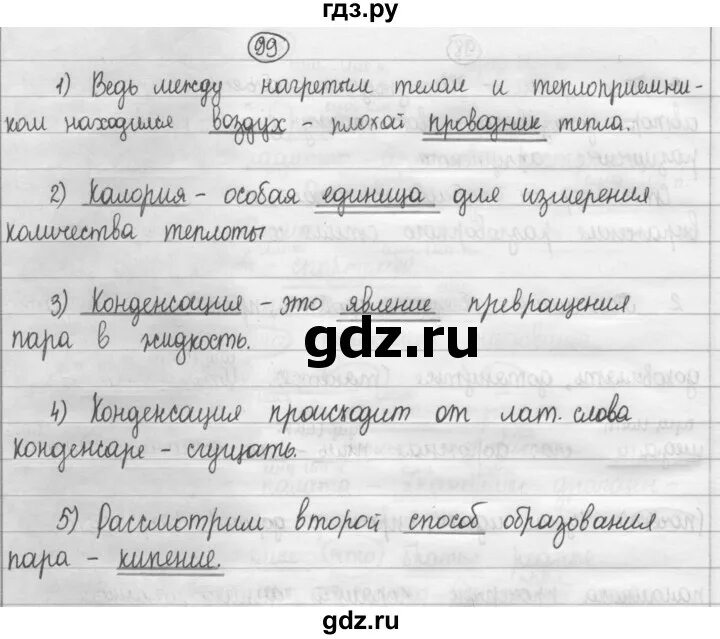 гдз.ру
99
1) Ведь между нагретым телом и теплоприемни-
ком находился воздух - плохой проводник тепла.
2) Калория - особая единица для измерения
количества теплоты
3) Конденсация - это явление превращения
пара в жидкость.
gdz.ru
4) Конденсация происходит от лат. слова
конденсаре - сгущать.
5) Рассмотрим второй способ образования
пара - кипение.
gdz.ru